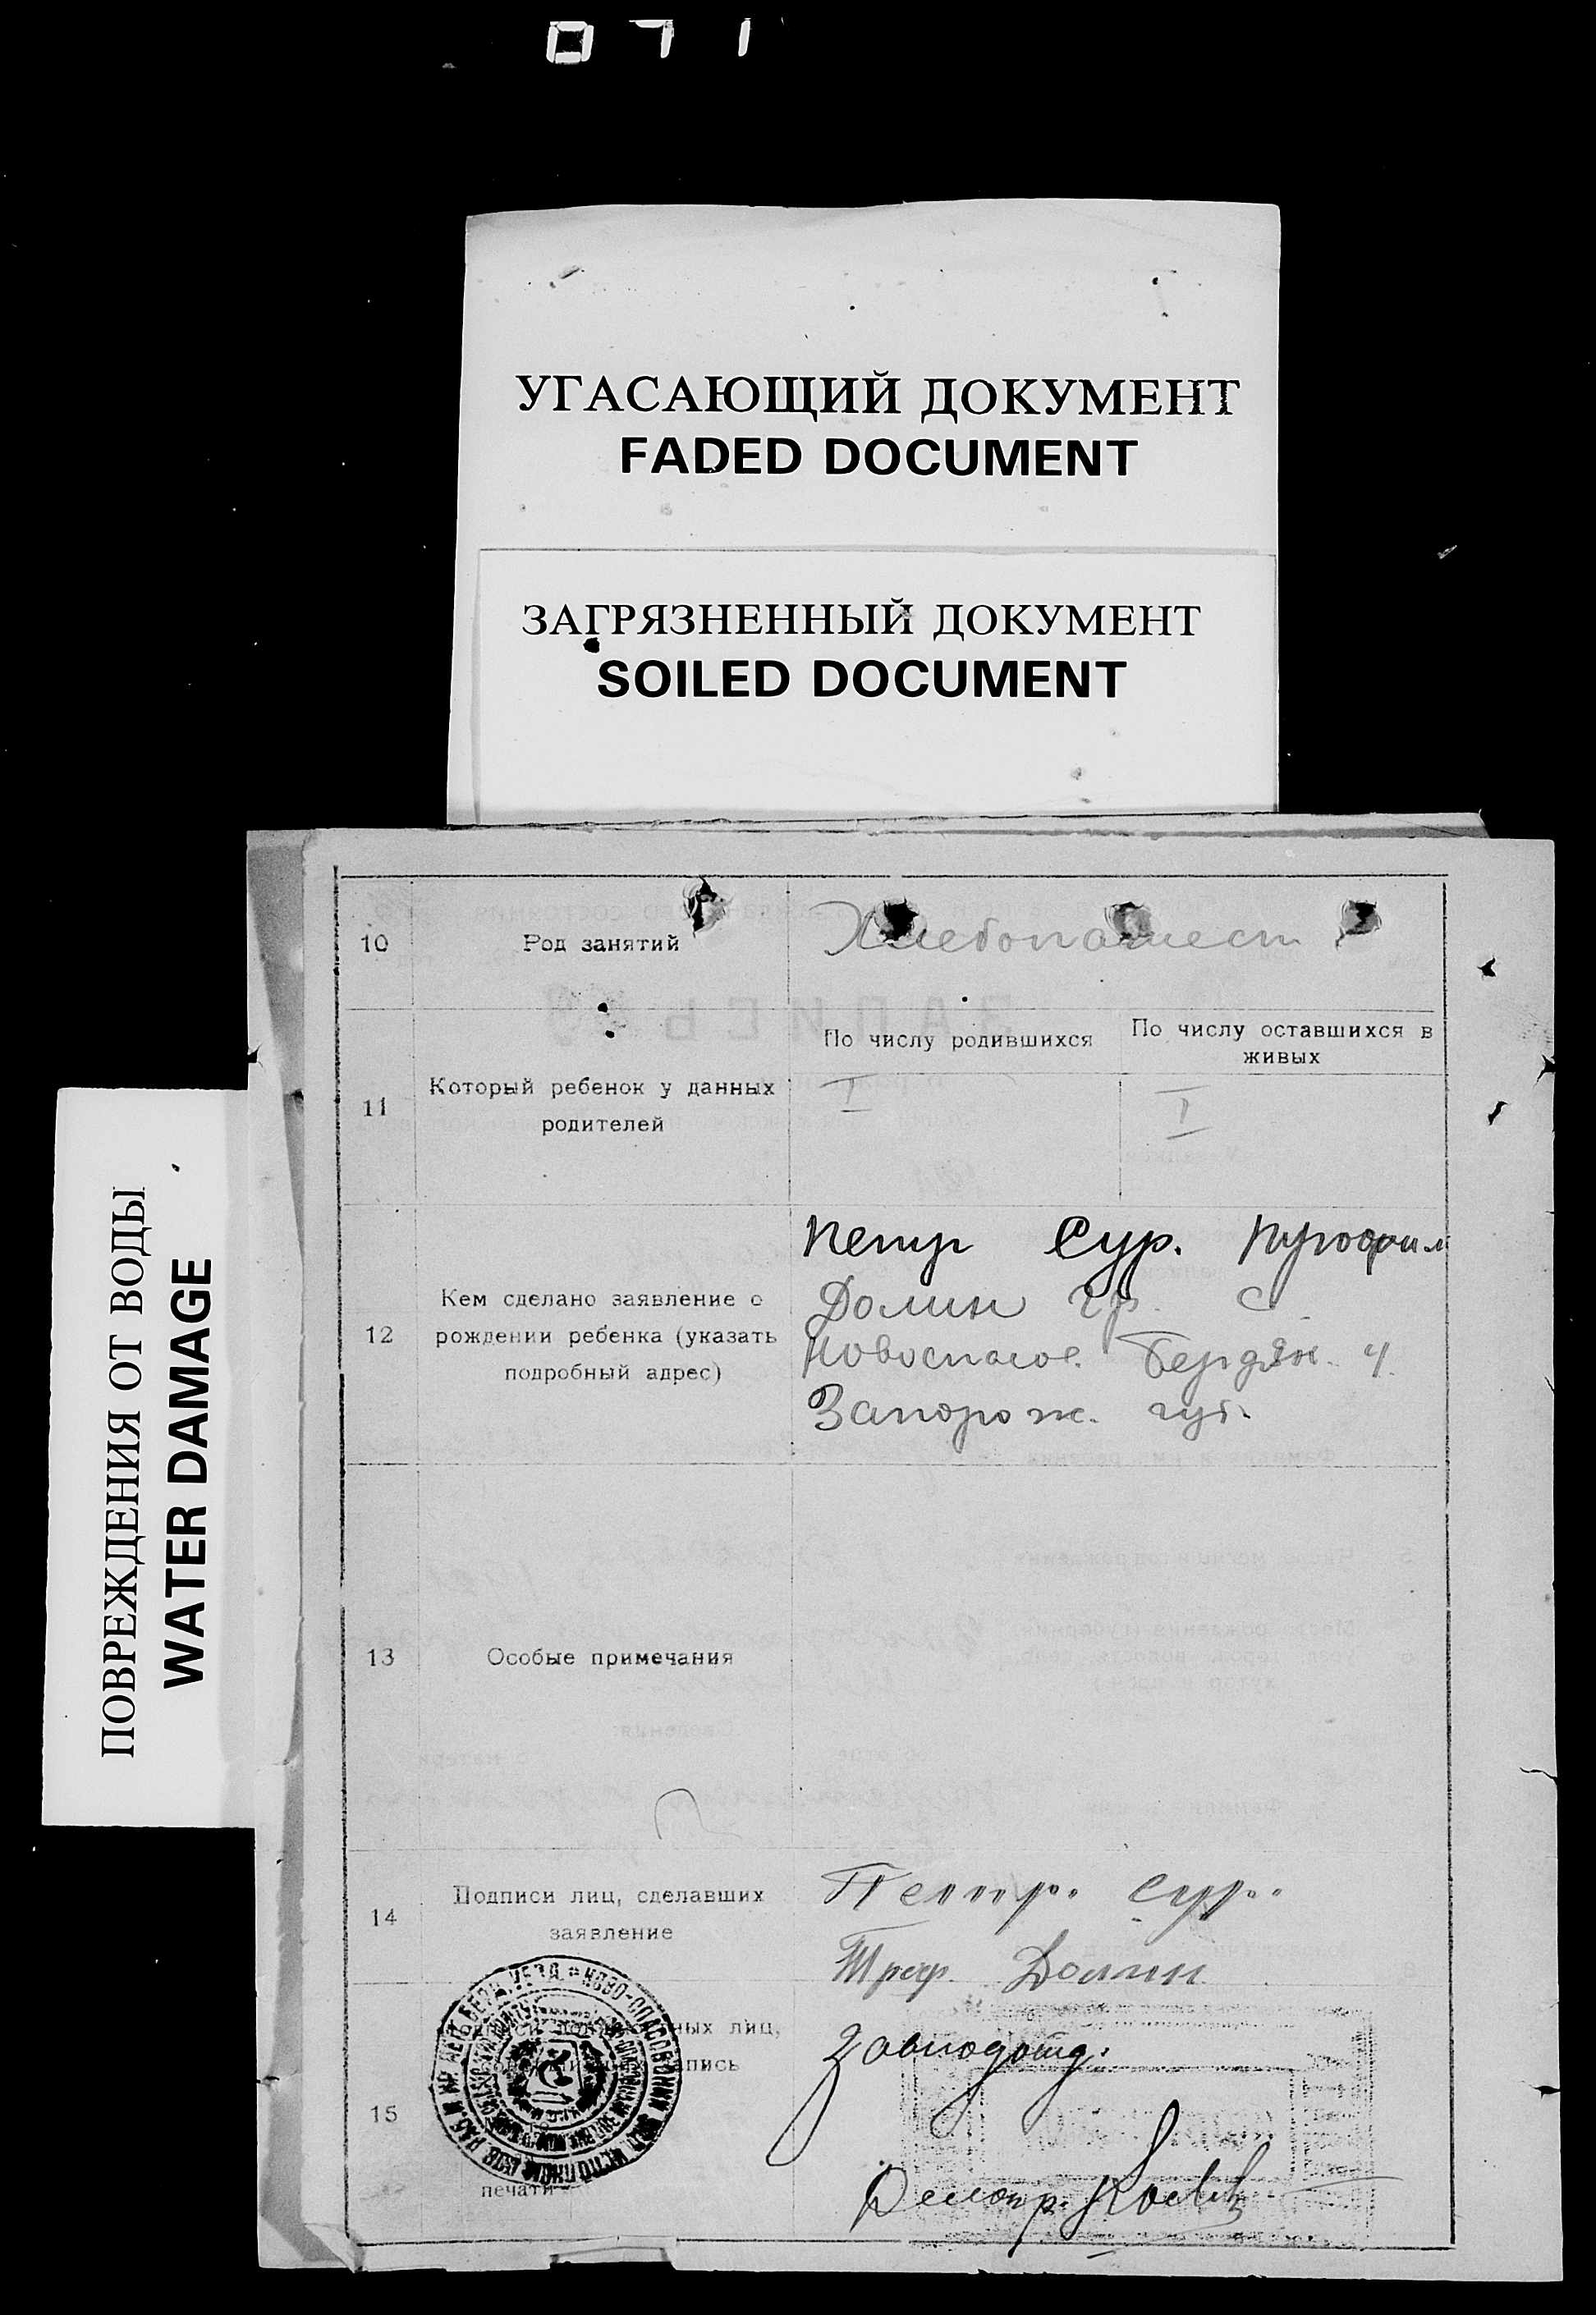 071
УГАСАЮЩИЙ ДОКУМЕНТ
FADED DOCUMENT
ЗАГРЯЗНЕННЫЙ ДОКУМЕНТ
SOILED DOCUMENT
ПОВРЕЖДЕНИЯ ОТ ВОДЫ
WATER DAMAGE
10 Род занятий
11 Который ребенок у данных
родителей
По числу родившихся
По числу оставшихся в
живых
I
I
12 Кем сделано заявление о
рождении ребенка (указать
подробный адрес)
Петр Сур.
Долин гр. С.
Новоспасов. Бердян. у.
Запорож. губ.
13 Особые примечания
14 Подписи лиц, сделавших
заявление
Петр. Сур.
Траф. Долин
15
печати
Делопр.